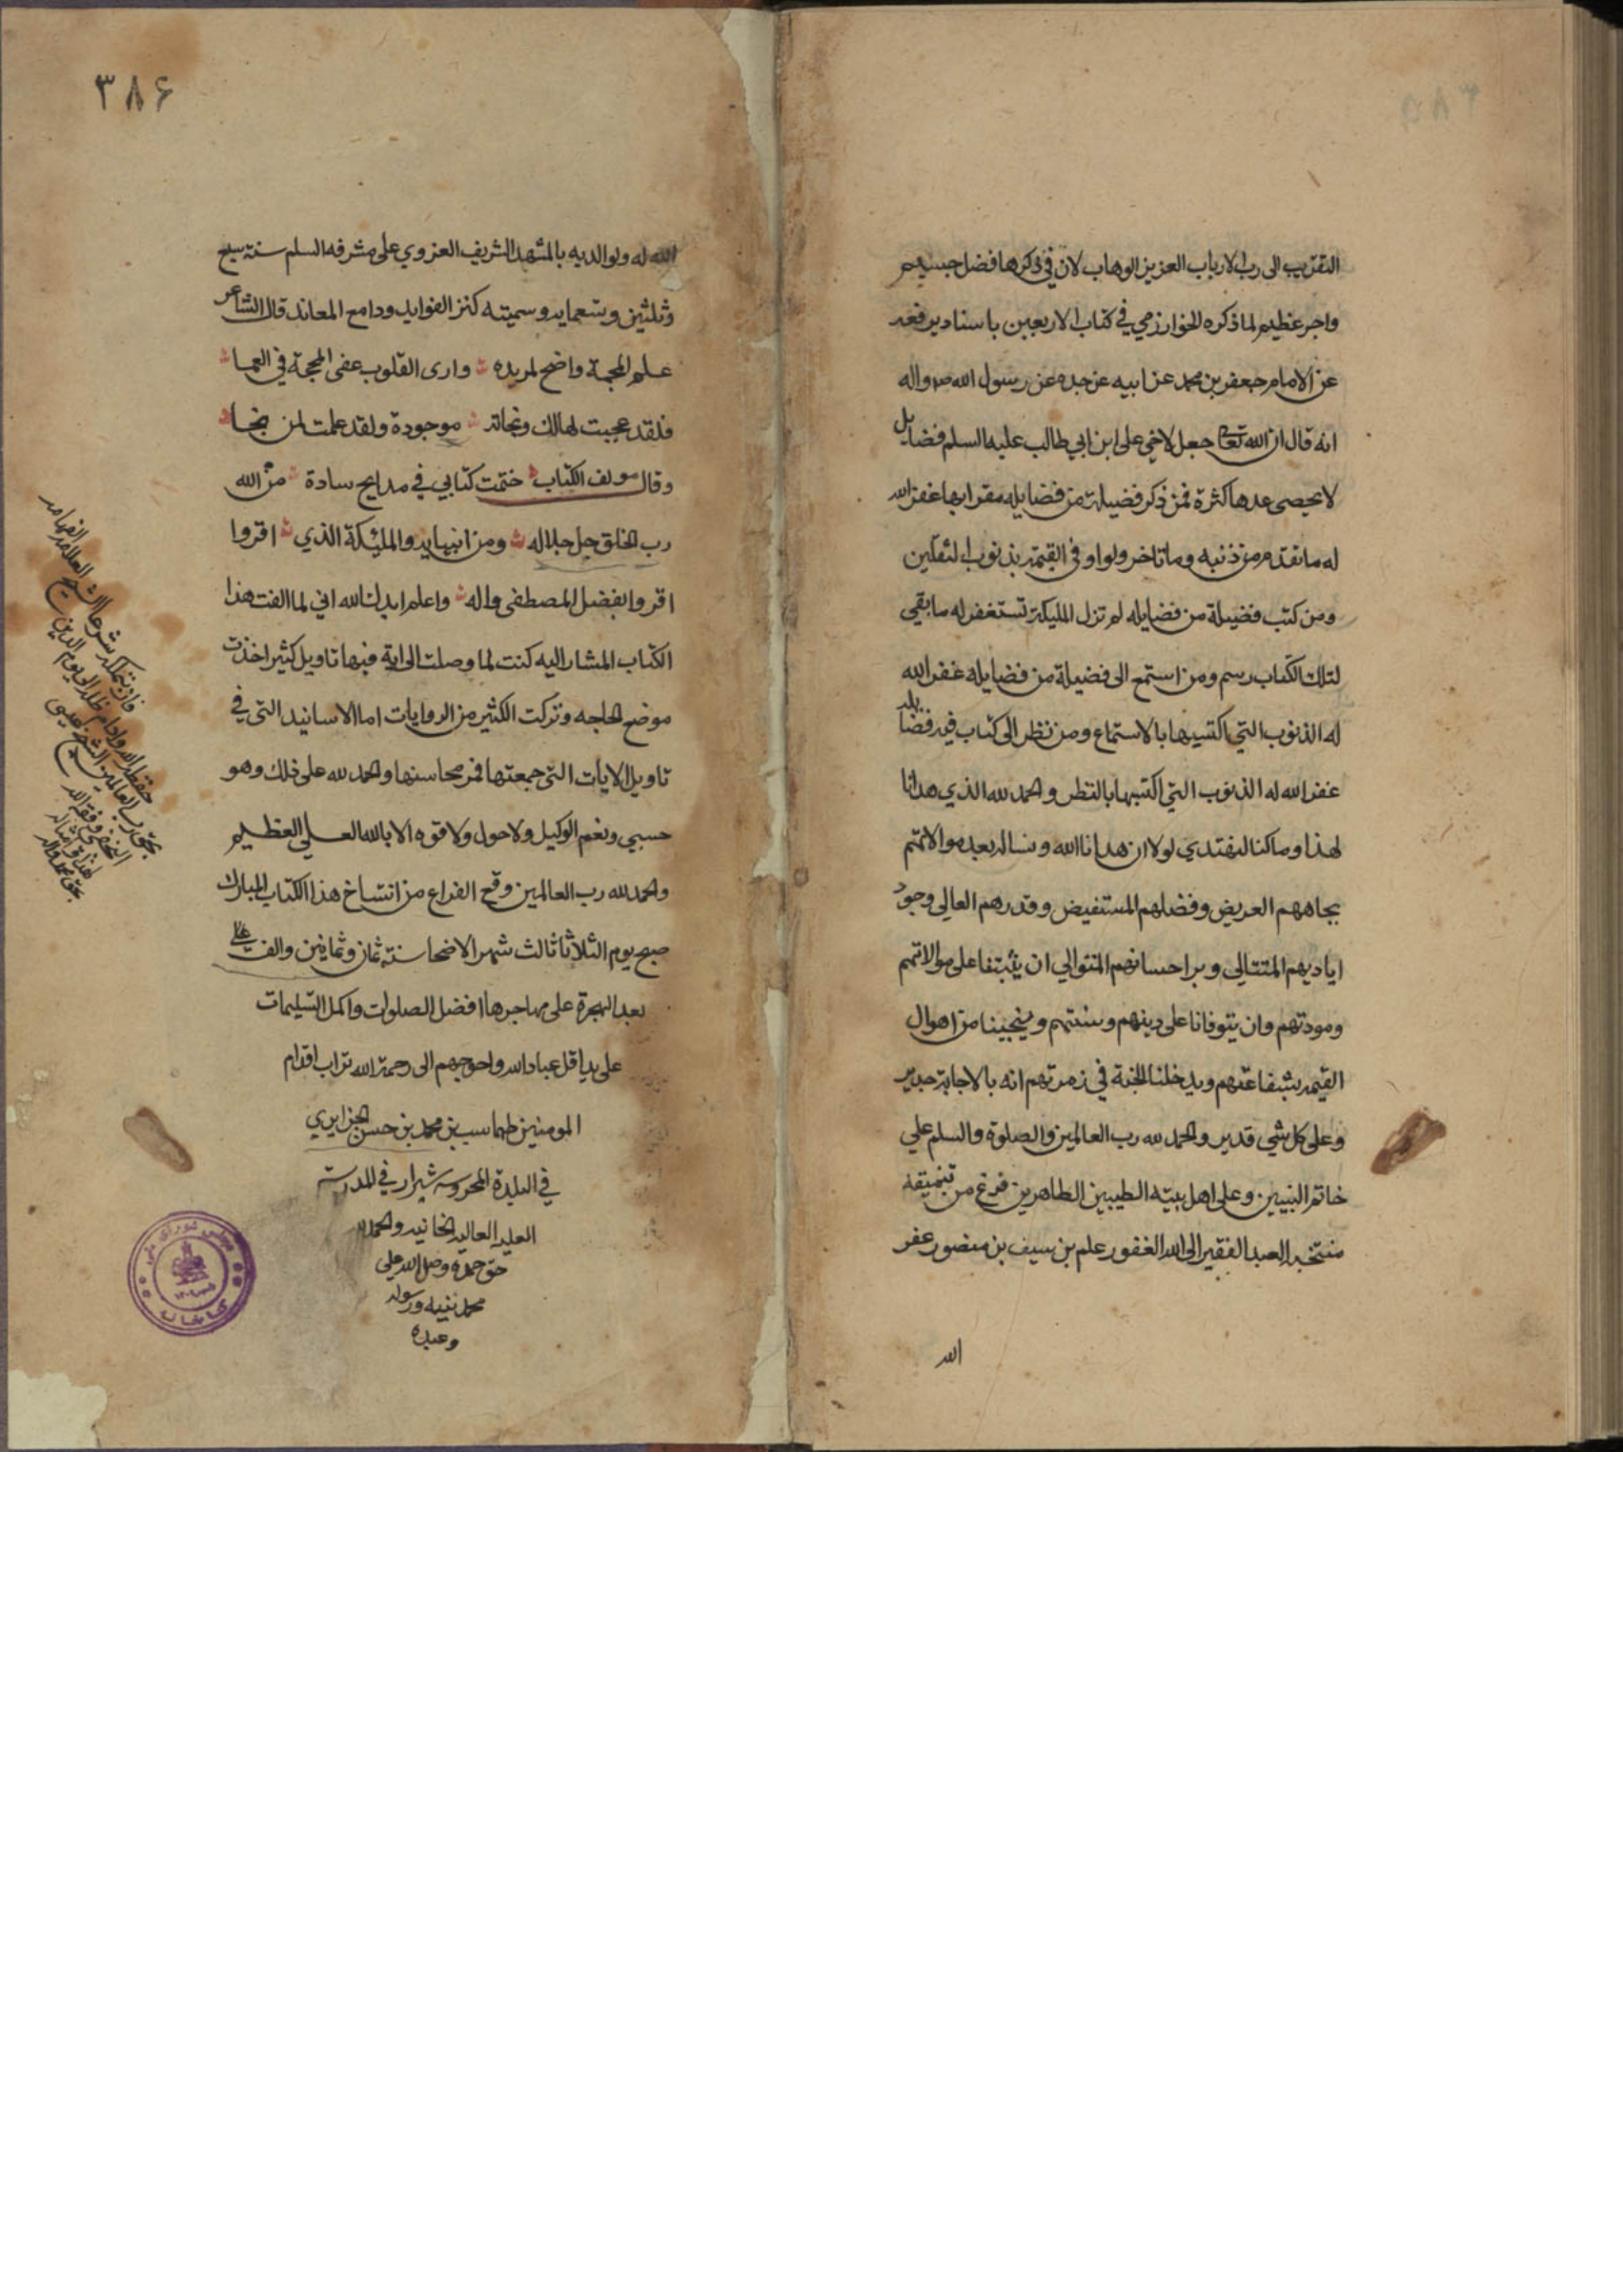 التقرب الى رب الارباب العزيز الوهاب لان في ذكرها فضل جسيم
واجر عظيم لما ذكره الخوارزمي في كتاب الاربعين باسناد يرفعه
عن الامام جعفر بن محمد عن ابيه عن جده عن رسول الله ص واله
انه قال ان الله تعالى جعل لاخي على ابن ابي طالب عليه السلم فضايل
لا يحصى عدها كثرة فمن ذكر فضيلة من فضايله مقرا بها غفر الله
له ما تقدم من ذنبه وما تاخر ولو اوفى القيمة بذنوب الثقلين
ومن كتب فضيلة من فضايله لم تزل المليكة تستغفر له ما بقي
لتلك الكتاب رسم ومن استمع الى فضيلة من فضايله غفر الله
له الذنوب التي اكتسبها بالاستماع ومن نظر الى كتاب فيه فضايله
غفر الله له الذنوب التي اكتسبها بالنظر والحمد لله الذي هدانا
لهذا وما كنا لنهتدي لولا ان هدانا الله ونساله بعد موالاتهم
بجاههم العريض وفضلهم المستفيض وقدرهم العالى وجود
اياديهم المتتالي وبر احسانهم المتوالي ان يثبتنا على موالاتهم
ومودتهم وان يتوفانا على دينهم وسنتهم وينجينا من اهوال
القيمة بشفاعتهم ويدخلنا الجنة في زمرتهم انه بالاجابة جدير
وعلى كل شي قدير والحمد لله رب العالمين والصلوة والسلم على
خاتم النبيين وعلى اهل بيته الطيبين الطاهرين فرغ من تنميقه
منتخبه العبد الفقير الى الله الغفور علم بن سيف بن منصور غفر
الله
٣٨۶
الله له ولوالديه بالمشهد الشريف الغروي على مشرفه السلم سنة سبع
وثلثين وتسعماية وسميته كنز الفوايد ودامع المعاند قال الشاعر
علم المحجة واضح لمريده وارى القلوب عفى المحجة في العما
فلقد عجبت لهالك ونجاته موجودة ولقد علمت لمن نجا
وقال مولف الكتاب ختمت كتابي في مدايح سادة من الله
رب الخلق جل جلاله ومن انبيايه والمليكة الذي اقروا
اقروا بفضل المصطفى واله واعلم ايدك الله اني لما الفت هذا
الكتاب المشار اليه كنت لما وصلت الى اية فيها تاويل كثير اخذت
موضع الحاجه وتركت الكثير من الروايات اما الاسانيد التي في
تاويل الايات التي جمعتها فمن محاسنها والحمد لله على ذلك وهو
حسبي ونعم الوكيل ولا حول ولا قوه الا بالله العلي العظيم
والحمد لله رب العالمين وقع الفراغ من انتساخ هذا الكتاب المبارك
صبح يوم الثلاثا ثالث شهر الاضحا سنة ثمان وثمانين والف
بعد الهجرة على مهاجرها افضل الصلوات واكمل التسليمات
على يد اقل عباد الله واحوجهم الى رحمة الله تراب اقدام
المومنين طهماسب بن محمد بن حسن الجزايري
في البلدة المحروسه شيراز في المدرسة
العليه العاليه الخانيه والحمد لله
حق حمده وصل الله على
محمد نبيه ورسوله
وعبده
حفظه الله وادام ظله الى يوم الدين
بحق رب العالمين الشيخ عيسى
النجفي وفقه الله
بحق محمد واله
مجلس شورای ملی
کتابخانه